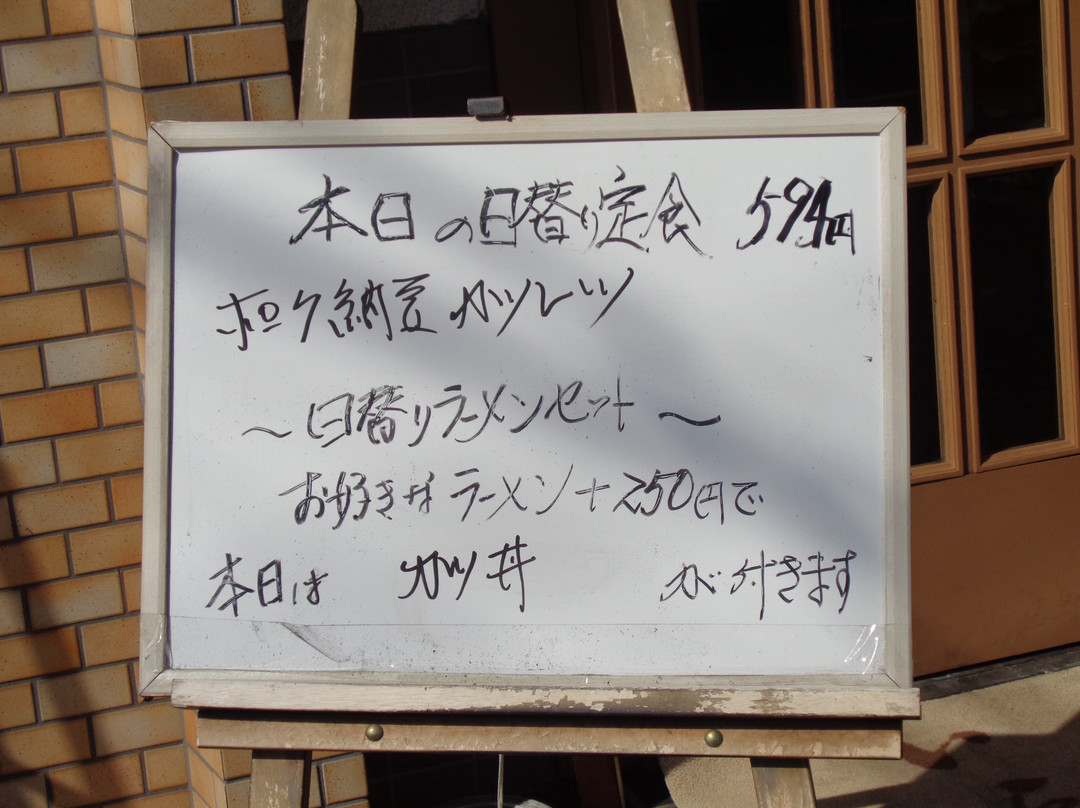 本日の日替り定食 594円
ポーク納豆カツレツ
～日替りラーメンセット～
お好きなラーメン+250円で
本日は カツ丼 が付きます